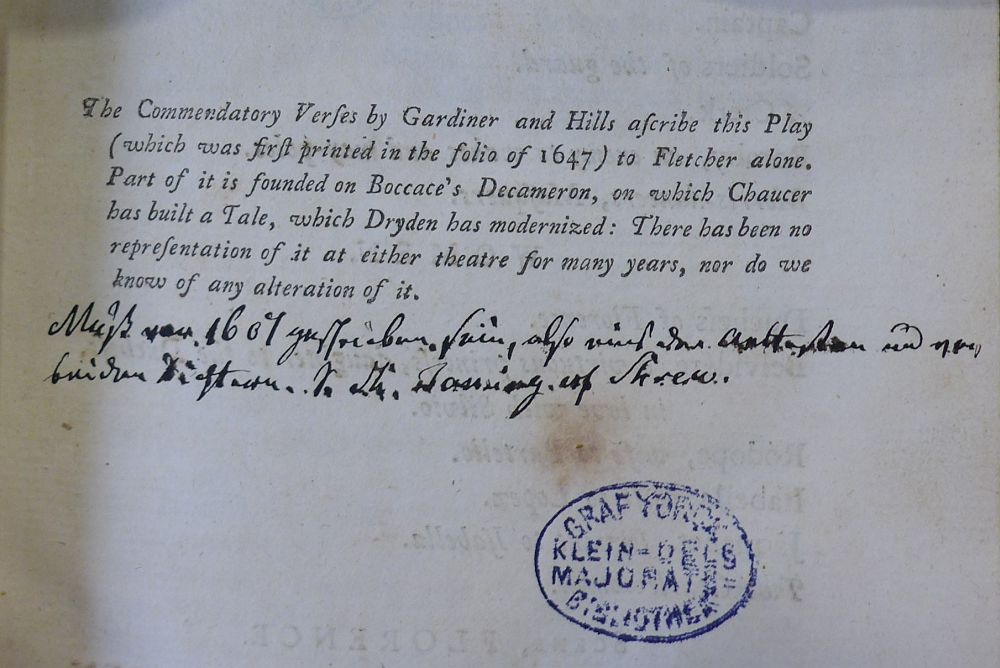 The Commendatory Verſes by Gardiner and Hills aſcribe this Play
(which was firſt printed in the folio of 1647) to Fletcher alone.
Part of it is founded on Boccace's Decameron, on which Chaucer
has built a Tale, which Dryden has modernized: There has been no
repreſentation of it at either theatre for many years, nor do we
know of any alteration of it.
Muß vor 1607 geschrieben sein, also eins der aeltesten und von
beiden Dichtern. S. Taming of Skrew.
GRAF YORCK
KLEIN-OELS
MAJORATS=
BIBLIOTHEK
Captain.
Soldiers of the guard.
Rodope,
Iſabella.
FLORENCE.